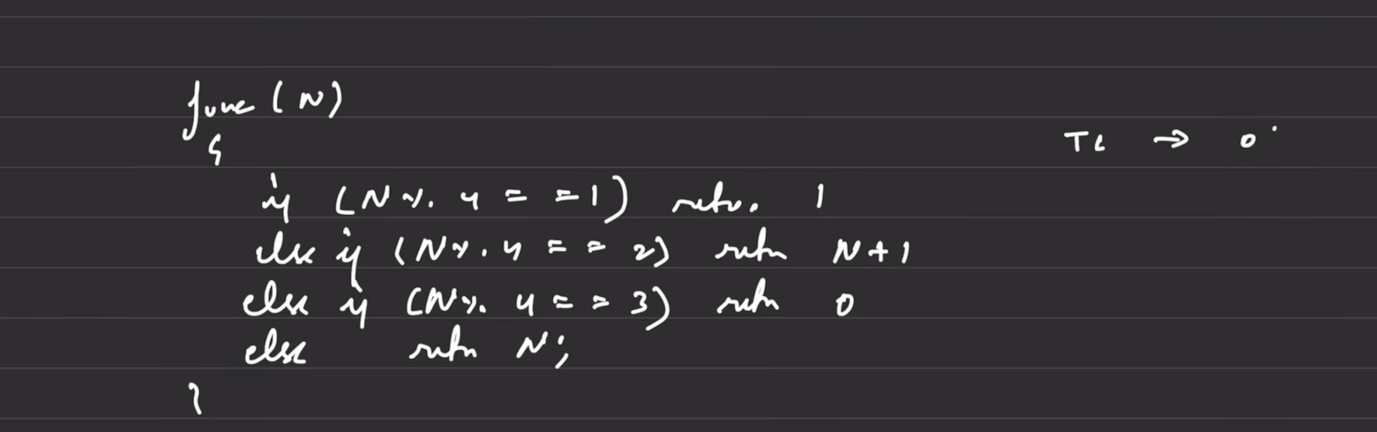 func (N)
{
if (N % 4 == 1) return 1
else if (N % 4 == 2) return N+1
else if (N % 4 == 3) return 0
else return N;
}
TC → O